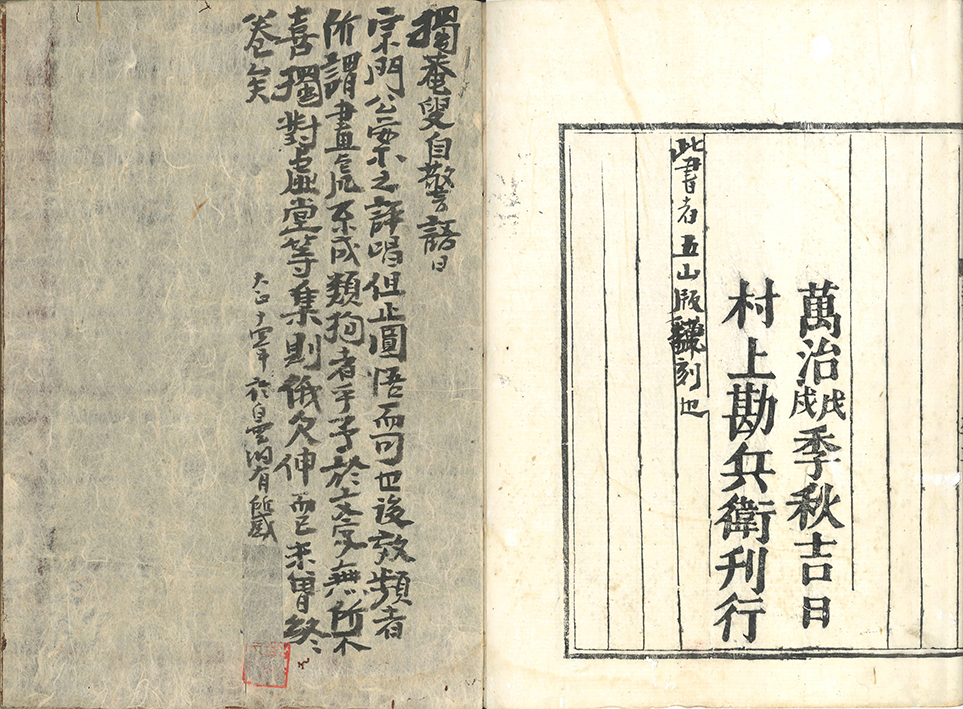 萬治戊戌季秋吉日
村上勘兵衛刊行
此書者五山版飜刻也
獨菴叟自警語曰
宗門公案之評唱但止圓悟而可也後效頻者
所謂畫虎不成類狗者乎予於文字無所不
喜獨對虛堂等集則俄欠伸而已未曾終
卷矣
大正十 年 於白雲洞有所感